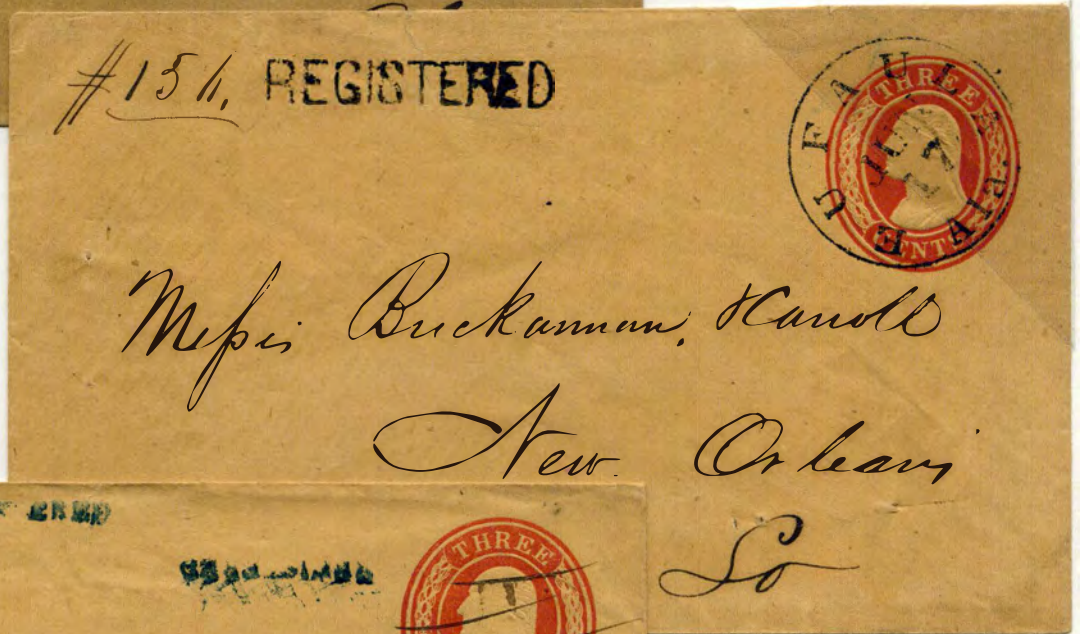 #15h. REGISTERED
EUFAULA Ala.
THREE
JUN
17
CENTS
Messrs Buckannan, Harrold
New Orleans
La
THREE